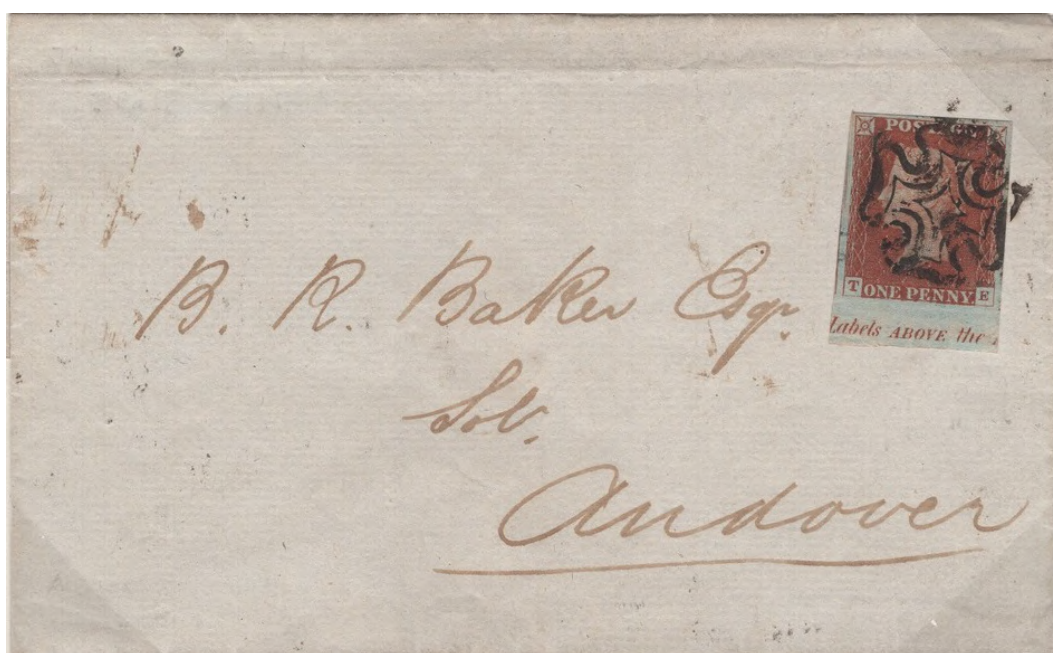 POSTAGE
T ONE PENNY E
Labels ABOVE the
B. R. Baker Esqr.
Solr.
Andover